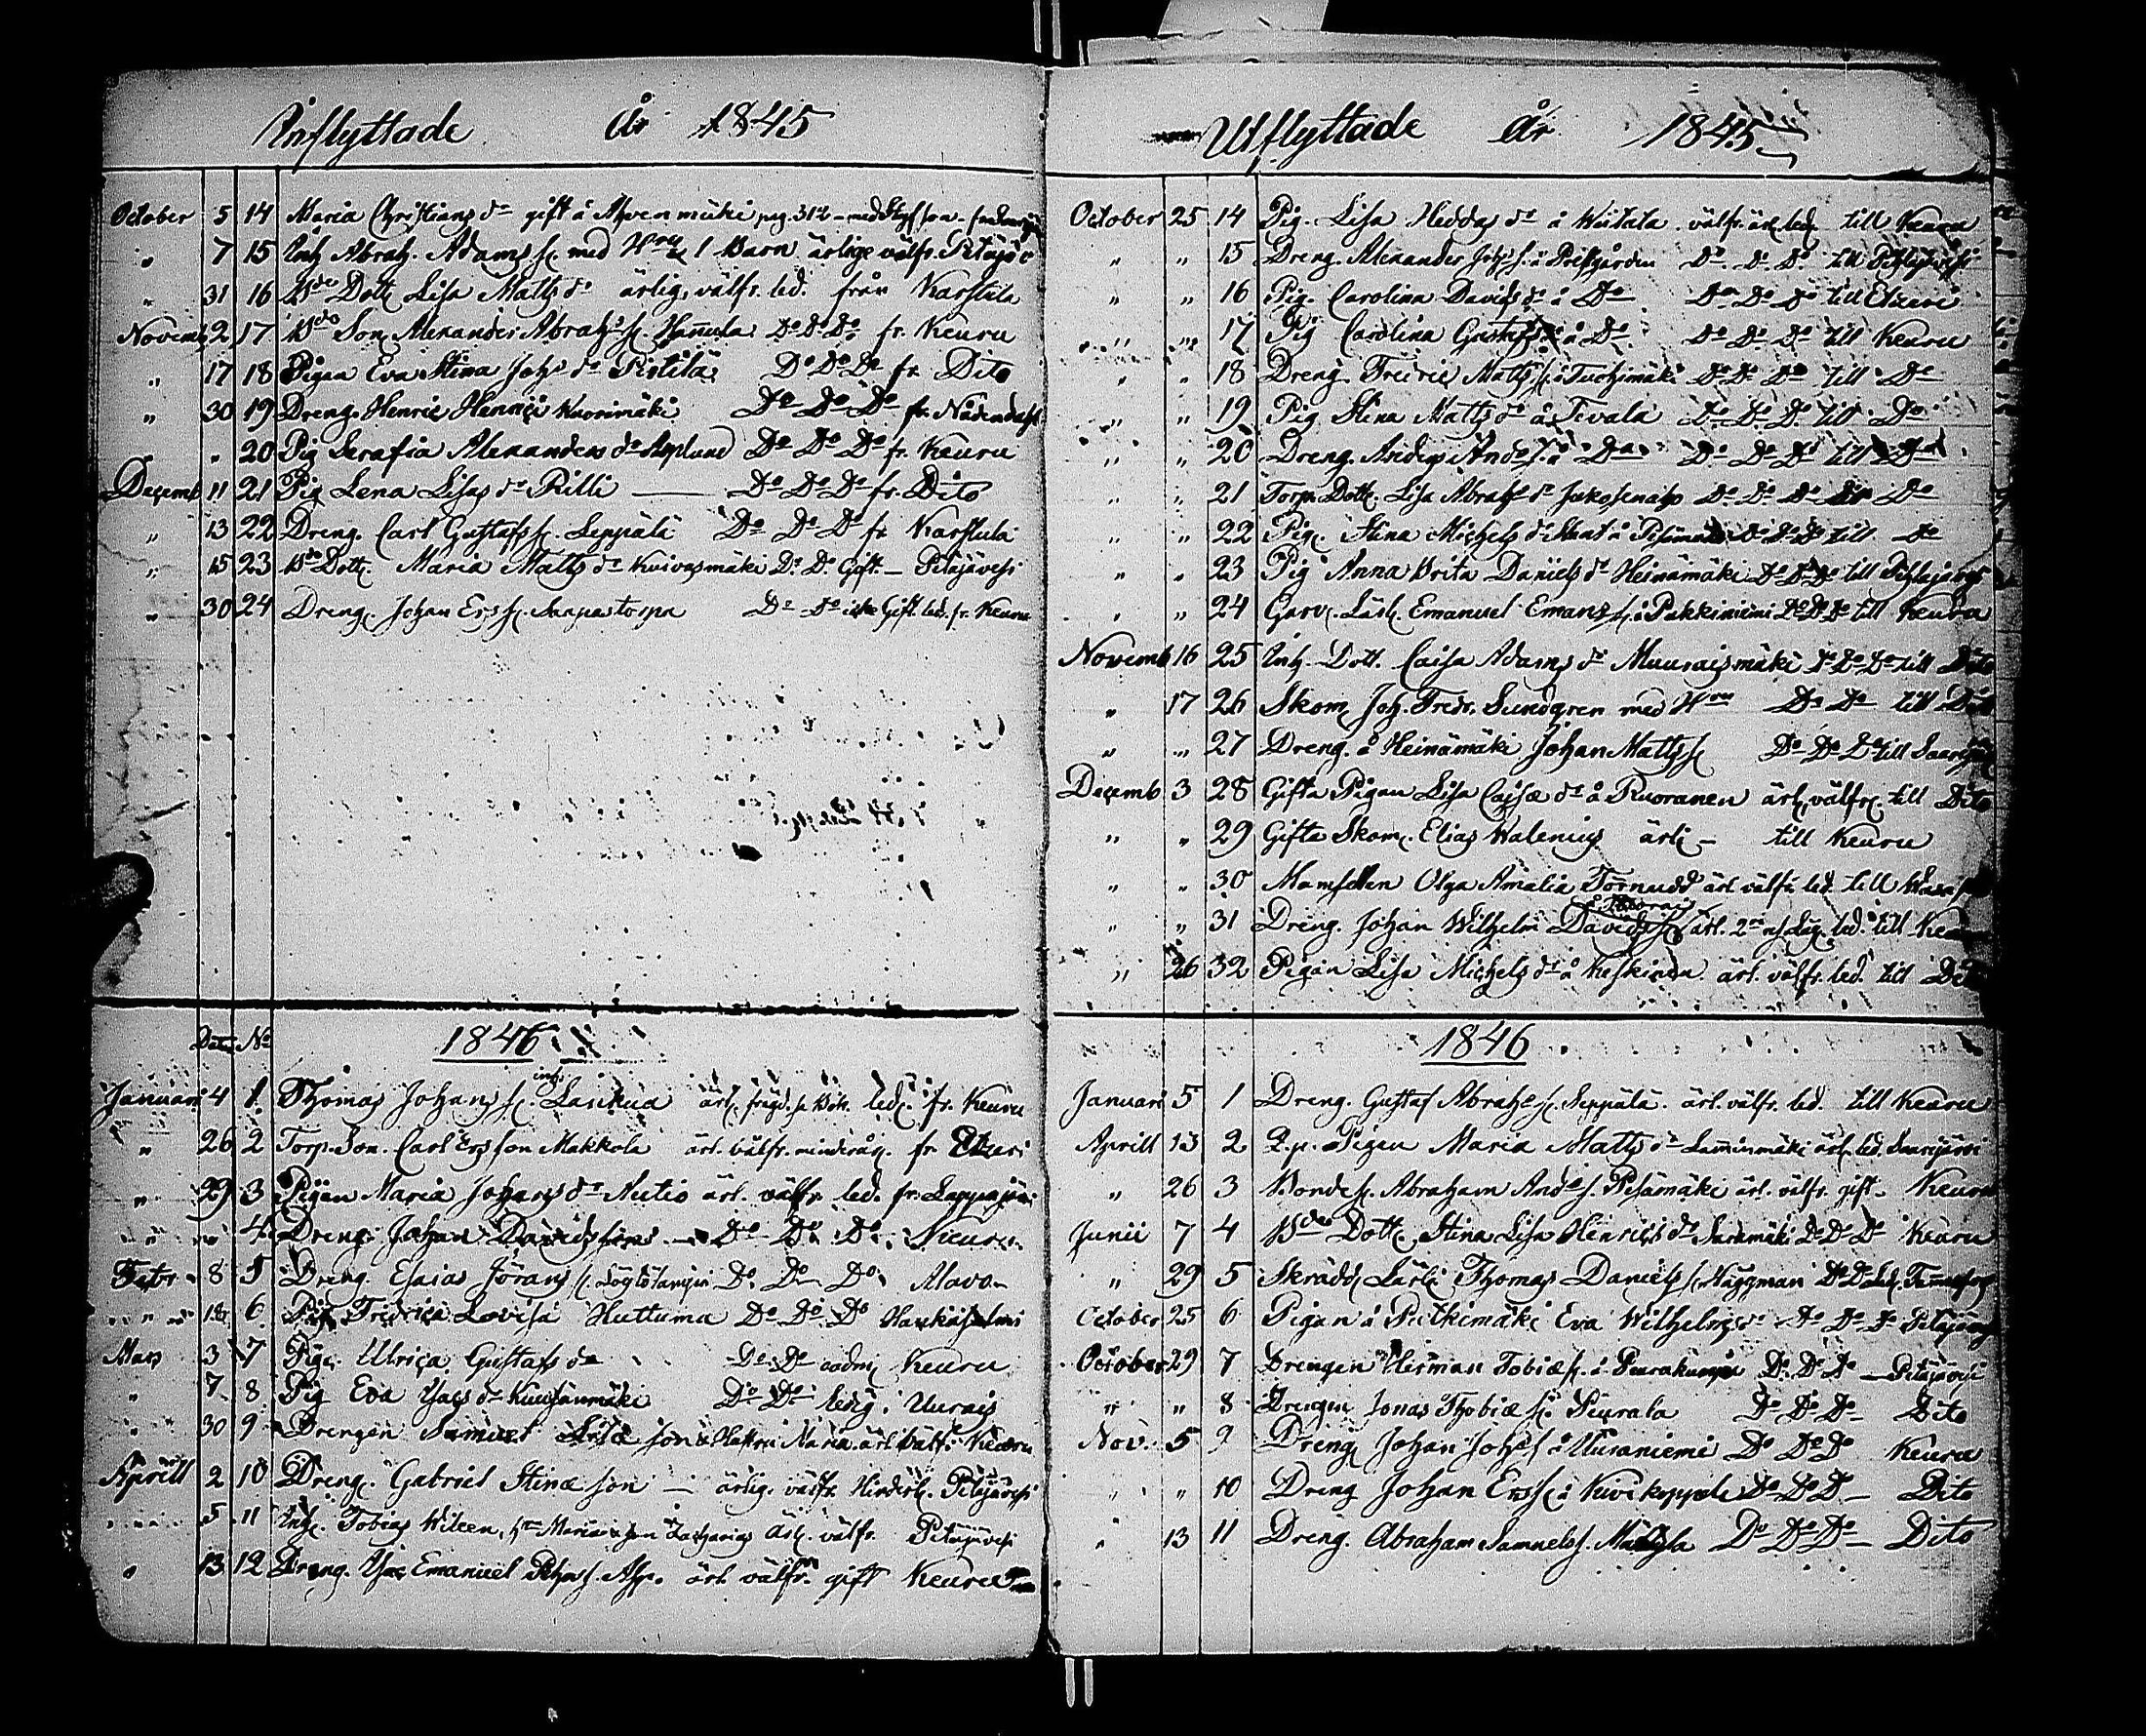 Inflyttade År 1845
October 5 14 Maria Christians dr gift å Ahvenmäki pag. 312 med Styfson
" 7 15 Inh Abrah. Adams s. med Hru & 1 Barn ärlige välfr. Petäjäv
" 31 16 Bde Dott. Lisa Matts dr ärlig, välfr. led. från Karstula
Novemb 2 17 Bde Son Alexander Abrahs s. Hannula Do Do Do fr. Keuru
" 17 18 Pigan Eva Stina Johs dr Pistilä Do Do Do fr. Dito
" 30 19 Dreng. Henric Henrici Kuorimäki Do Do Do fr. Nådendahl
" " 20 Pig Serafia Alexanders dr Asplund Do Do Do fr. Keuru
Decemb 11 21 Pig Lena Lisas dr Rilli Do Do Do fr. Dito
" 13 22 Dreng. Carl Gustafs s. Seppälä Do Do Do fr Karstula
" 15 23 Bde Dott. Maria Matts dr Kuivasmäki Do Do Gift - Petäjävesi
" 30 24 Dreng. Johan Ers s. Do Do icke Gift led. fr. Keuru
Dato No 1846
Januari 4 1. Thomas Johans s. inh. Laukua ärl. led. fr. Keuru
" 26 2 Torp. Son. Carl Ersson Makkola ärl. välfr. minderåg. fr. Etzeri
" 29 3 Pigan Maria Johans dr Autio ärl. välfr led. fr. Lappajärvi
" " 4 Dreng. Johan Davidsson Do Do Do Keuru
Febr. 8 5 Dreng Esaias Jörans s. Do Do Do Alavo
" 18 6 Pig. Fredrica Lovisa Huttuma Do Do Do Hankasalmi
Mars 3 7 Pig. Ulrica Gustafs dr Do Do Keuru
" 7 8 Pig Eva Isacs dr Kuusanmäki Do Do ledig. Uurais
" 30 9 Drengen Samuel Maria ärl. välfr. Keuru
Aprill 2 10 Dreng. Gabriel Stinæ son - ärlig. välfr. Petäjävesi
" 5 11 Inh. Tobias Wileen, Hru Maria & son Zacharias ärl. välfr. Petäjävesi
" 13 12 Dreng. Isac Emanuel ärl. välfr. gift Keuru
Utflyttade År 1845
October 25 14 Pig. Lisa Heddas dr å Wiitala välfr. ärl. led. till Keuru
" " 15 Dreng. Alexander Johs s. å Prestgården Do Do Do till Pihlajavesi
" " 16 Pig. Carolina Davids dr å Do Do Do Do till Etzeri
" " 17 Pig Carolina Gustafs dr å Do Do Do Do till Keuru
" " 18 Dreng Fredric Matts s. å Tuohimäki Do Do Do till Do
" " 19 Pig Stina Matts dr å Tevala Do Do Do till Do
" " 20 Dreng. Anders Ands s. å Do Do Do Do till Do
" " 21 Torp. Dott. Lisa Abrahs dr Do Do Do till Do
" " 22 Pig. Stina Michels dr Do Do Do till Do
" " 23 Pig Anna Brita Daniels dr Heinämäki Do Do Do till Pihlajavesi
" " 24 Garv. Lärl. Emanuel Emans s. å Pakkiniemi Do Do Do till Keuru
Novemb 16 25 Inh. Dott. Caisa Adams dr Muuraismäki Do Do Do till Dito
" 17 26 Skom. Joh. Fredr. Sundgren med Hru Do Do till Dito
" " 27 Dreng. å Heinämäki Johan Matts s. Do Do Do till Saarijärvi
Decemb 3 28 Gifta Pigan Lisa Caisæ dr å Ruoranen ärl. välfr. till Dito
" " 29 Gifta Skom. Elias Walenius ärli - till Keuru
" " 30 Mamsellen Olga Amalia Törnudd ärl. välfr. led. till Wasa
" " 31 Dreng. Johan Wilhelm Davids s. ärl. led. till Keuru
" 26 32 Pigan Lisa Michels dr å Keskinen ärl. välfr. led. till Dito
1846
Januari 5 1 Dreng. Gustaf Abrahs s. Seppälä ärl. välfr. led. till Keuru
Aprill 13 2 Pigan Maria Matts dr Lamminmäki ärl. led. Saarijärvi
" 26 3 Bonde s. Abraham Ands s. Pesämäki ärl. välfr. gift. Keuru
Junii 7 4 Bde Dott. Stina Lisa Henrics dr Do Do Do Keuru
" 29 5 Skrädd. Lärl. Thomas Daniels s. Häggman Do Do led. Tammerfors
October 25 6 Pigan å Putkimäki Eva Wilhelms dr Do Do Do Petäjävesi
October 29 7 Drengen Herman Tobiæ s. å Do Do Do - Petäjävesi
" " 8 Drengen Jonas Thobiæ s. Peurala Do Do Do Dito
Nov. 5 9 Dreng Johan Johs s. å Uuraniemi Do Do Do Keuru
" " 10 Dreng Johan Ers s. å Kivikoppala Do Do Do - Dito
" 13 11 Dreng. Abraham Samuels s. Do Do Do - Dito